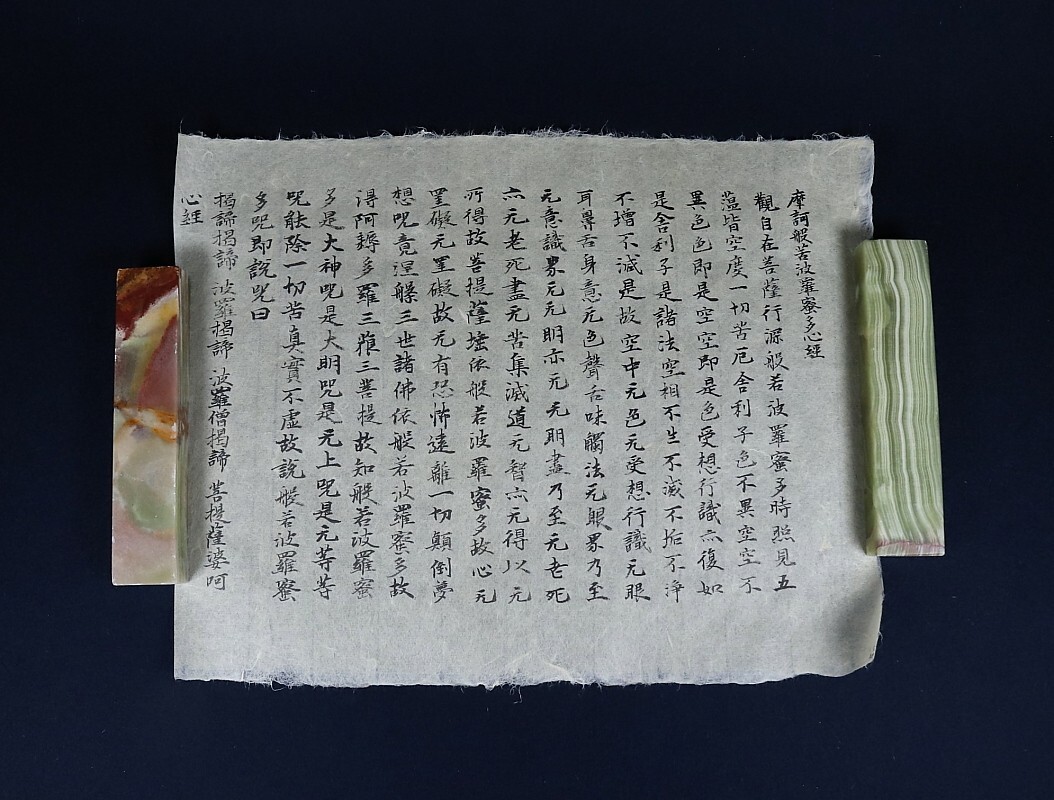 摩訶般若波羅蜜多心經
觀自在菩薩行深般若波羅蜜多時照見五
薀皆空度一切苦厄舍利子色不異空空不
異色色即是空空即是色受想行識亦復如
是舍利子是諸法空相不生不滅不垢不淨
不增不減是故空中无色无受想行識无眼
耳鼻舌身意无色聲舌味觸法无眼界乃至
无意識界无无明亦无无明盡乃至无老死
亦无老死盡无苦集滅道无智亦无得以无
所得故菩提薩埵依般若波羅蜜多故心无
罣礙无罣礙故无有恐怖遠離一切顛倒夢
想咒竟涅槃三世諸佛依般若波羅蜜多故
得阿耨多羅三藐三菩提故知般若波羅蜜
多是大神咒是大明咒是无上咒是无等等
咒能除一切苦真實不虛故說般若波羅蜜
多咒即說咒曰
揭諦揭諦 波羅揭諦 波羅僧揭諦 菩提薩婆呵
心經